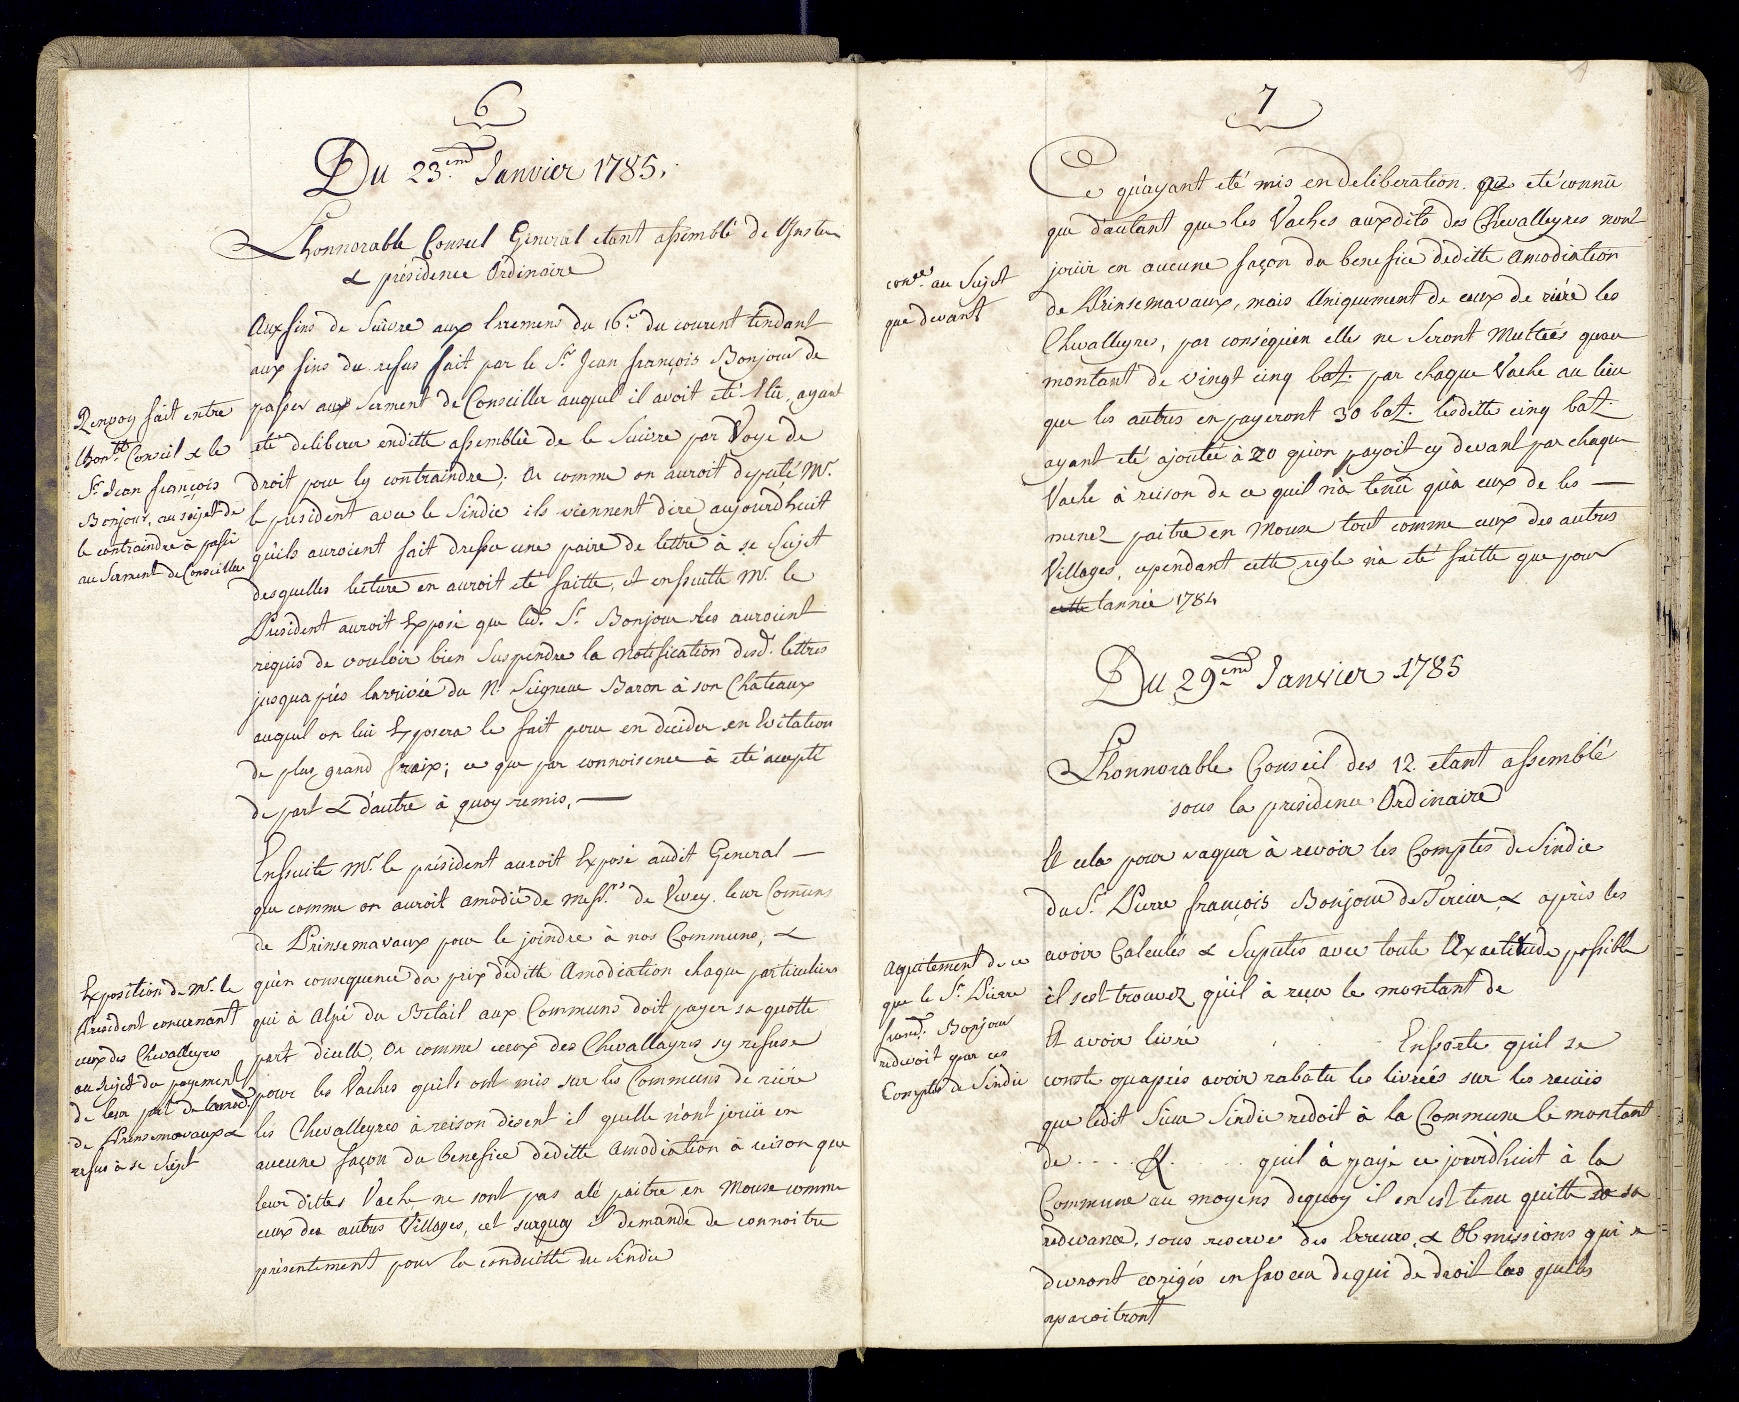 6
Du 23.eme Janvier 1785.
Lhonnorable Conseil General etant assemblé de linstance
& présidence Ordinaire
Aux fins de Suivre aux Erremens du 16.e du courent tendant
aux fins du refus fait par le Sr. Jean françois Bonjour de
passer aux Serment de Conseiller auquel il avoit eté Elu, ayant
eté deliberer enditte assemblée de le Suivre par Voye de
droit pour ly contraindre; Or comme on auroit deputé Mr.
le president avec le Sindic ils viennent dire aujourdhuit
quils auroient fait dresser une paire de lettre à se Sujet
desquelles lecture en auroit eté faitte, et ensuitte Mr. le
President auroit Exposé que led. Sr. Bonjour les auroient
requis de vouloir bien Suspendre la notification desd. lettres
jusqua prés larrivée du N. Seigneur Baron à son Chateaux
auquel on lui Exposera le fait pour en decider en Evitation
de plus grand fraix; ce que par connoisence à eté acepté
de part & d'autre à quoy remis. —
Renvoy fait entre
lhonble. Conseil & le
Sr. Jean françois
Bonjour, au sujet de
le contraindre à passer
au Serment de Conseiller
Ensuite Mr. le président auroit Exposé audit General —
que comme on auroit amodié de messrs. de Vevey leur Comuns
de Prinsemavaux pour le joindre à nos Communs, &
qu'en consequence du prix deditte Amodiation chaque particuliers
qui à Alpé du Bétail aux Communs doit payer sa quotte
part d'icelle, Or comme ceux des Chevallayres sy refuse
pour les Vaches quils ont mis sur les Communs de riére
les Chevalleyres à reison disent il quelle n'ont jouïe en
aucune façon du benefice deditte Amodiation à reison que
leur dittes Vache ne sont pas alé paitre en Mouse comme
ceux des autres Villages, cet surquoy il demande de connoitre
présentement pour la conduitte du Sindic
Exposition de Mr. le
President concernant
ceux des Chevalleyres
au sujet du payement
de leur part de lamod.
de Prinsemavaux &
refus à se Sujet
7
Ce qu'ayant eté mis en deliberation. à eté connü
que d'autant que les Vaches auxdits des Chevalleyres nont
jouïr en aucune façon du benefice deditte Amodiation
de Prinsemavaux, mais Uniquement de ceux de riére les
Chevalleyres, par conséquien elles ne Seront Multées quau
montant de vingt cinq batz. par chaque Vache au lieu
que les autres en payeront 30 batz. lesditte cinq batz.
ayant eté ajoutée à 20 qu'on payoit cy devant par chaque
Vache à reison de ce quil n'a tenü qu'à eux de les —
menez paitre en Mouse tout comme ceux des autres
Villages, cependant cette regle n'à eté faitte que pour
cette lannée 1784
conce. au Sujet
que devant
Du 29.eme Janvier 1785
Lhonnorable Conseil des 12. etant assemblé
sous la presidence Ordinaire
Et cela pour vaquer à revoir les Comptes de Sindic
du Sr. Pierre françois Bonjour de Tercier, & après les
avoir Calculés & Suputés avec toute Exactitude possible
il s'est trouvez qu'il à reçu le montant de
Et avoir livré . . Ensorte quil se
conste quaprès avoir rabatu les livrées sur les recuïs
que ledit Sieur Sindic redoit à la Commune le montant
de . . . . . . quil à payé ce jourd'huit à la
Commune au moyens dequoy il en est tenu quitte de sa
redevance, sous reserves des Erreurs, & Obmissions qui se
devront corigés en faveur de qui de droit las quelles
aparoitront
Aquitement de ce
que le Sr. Pierre
françs. Bonjour
redevoit par ces
Comptes de Sindic